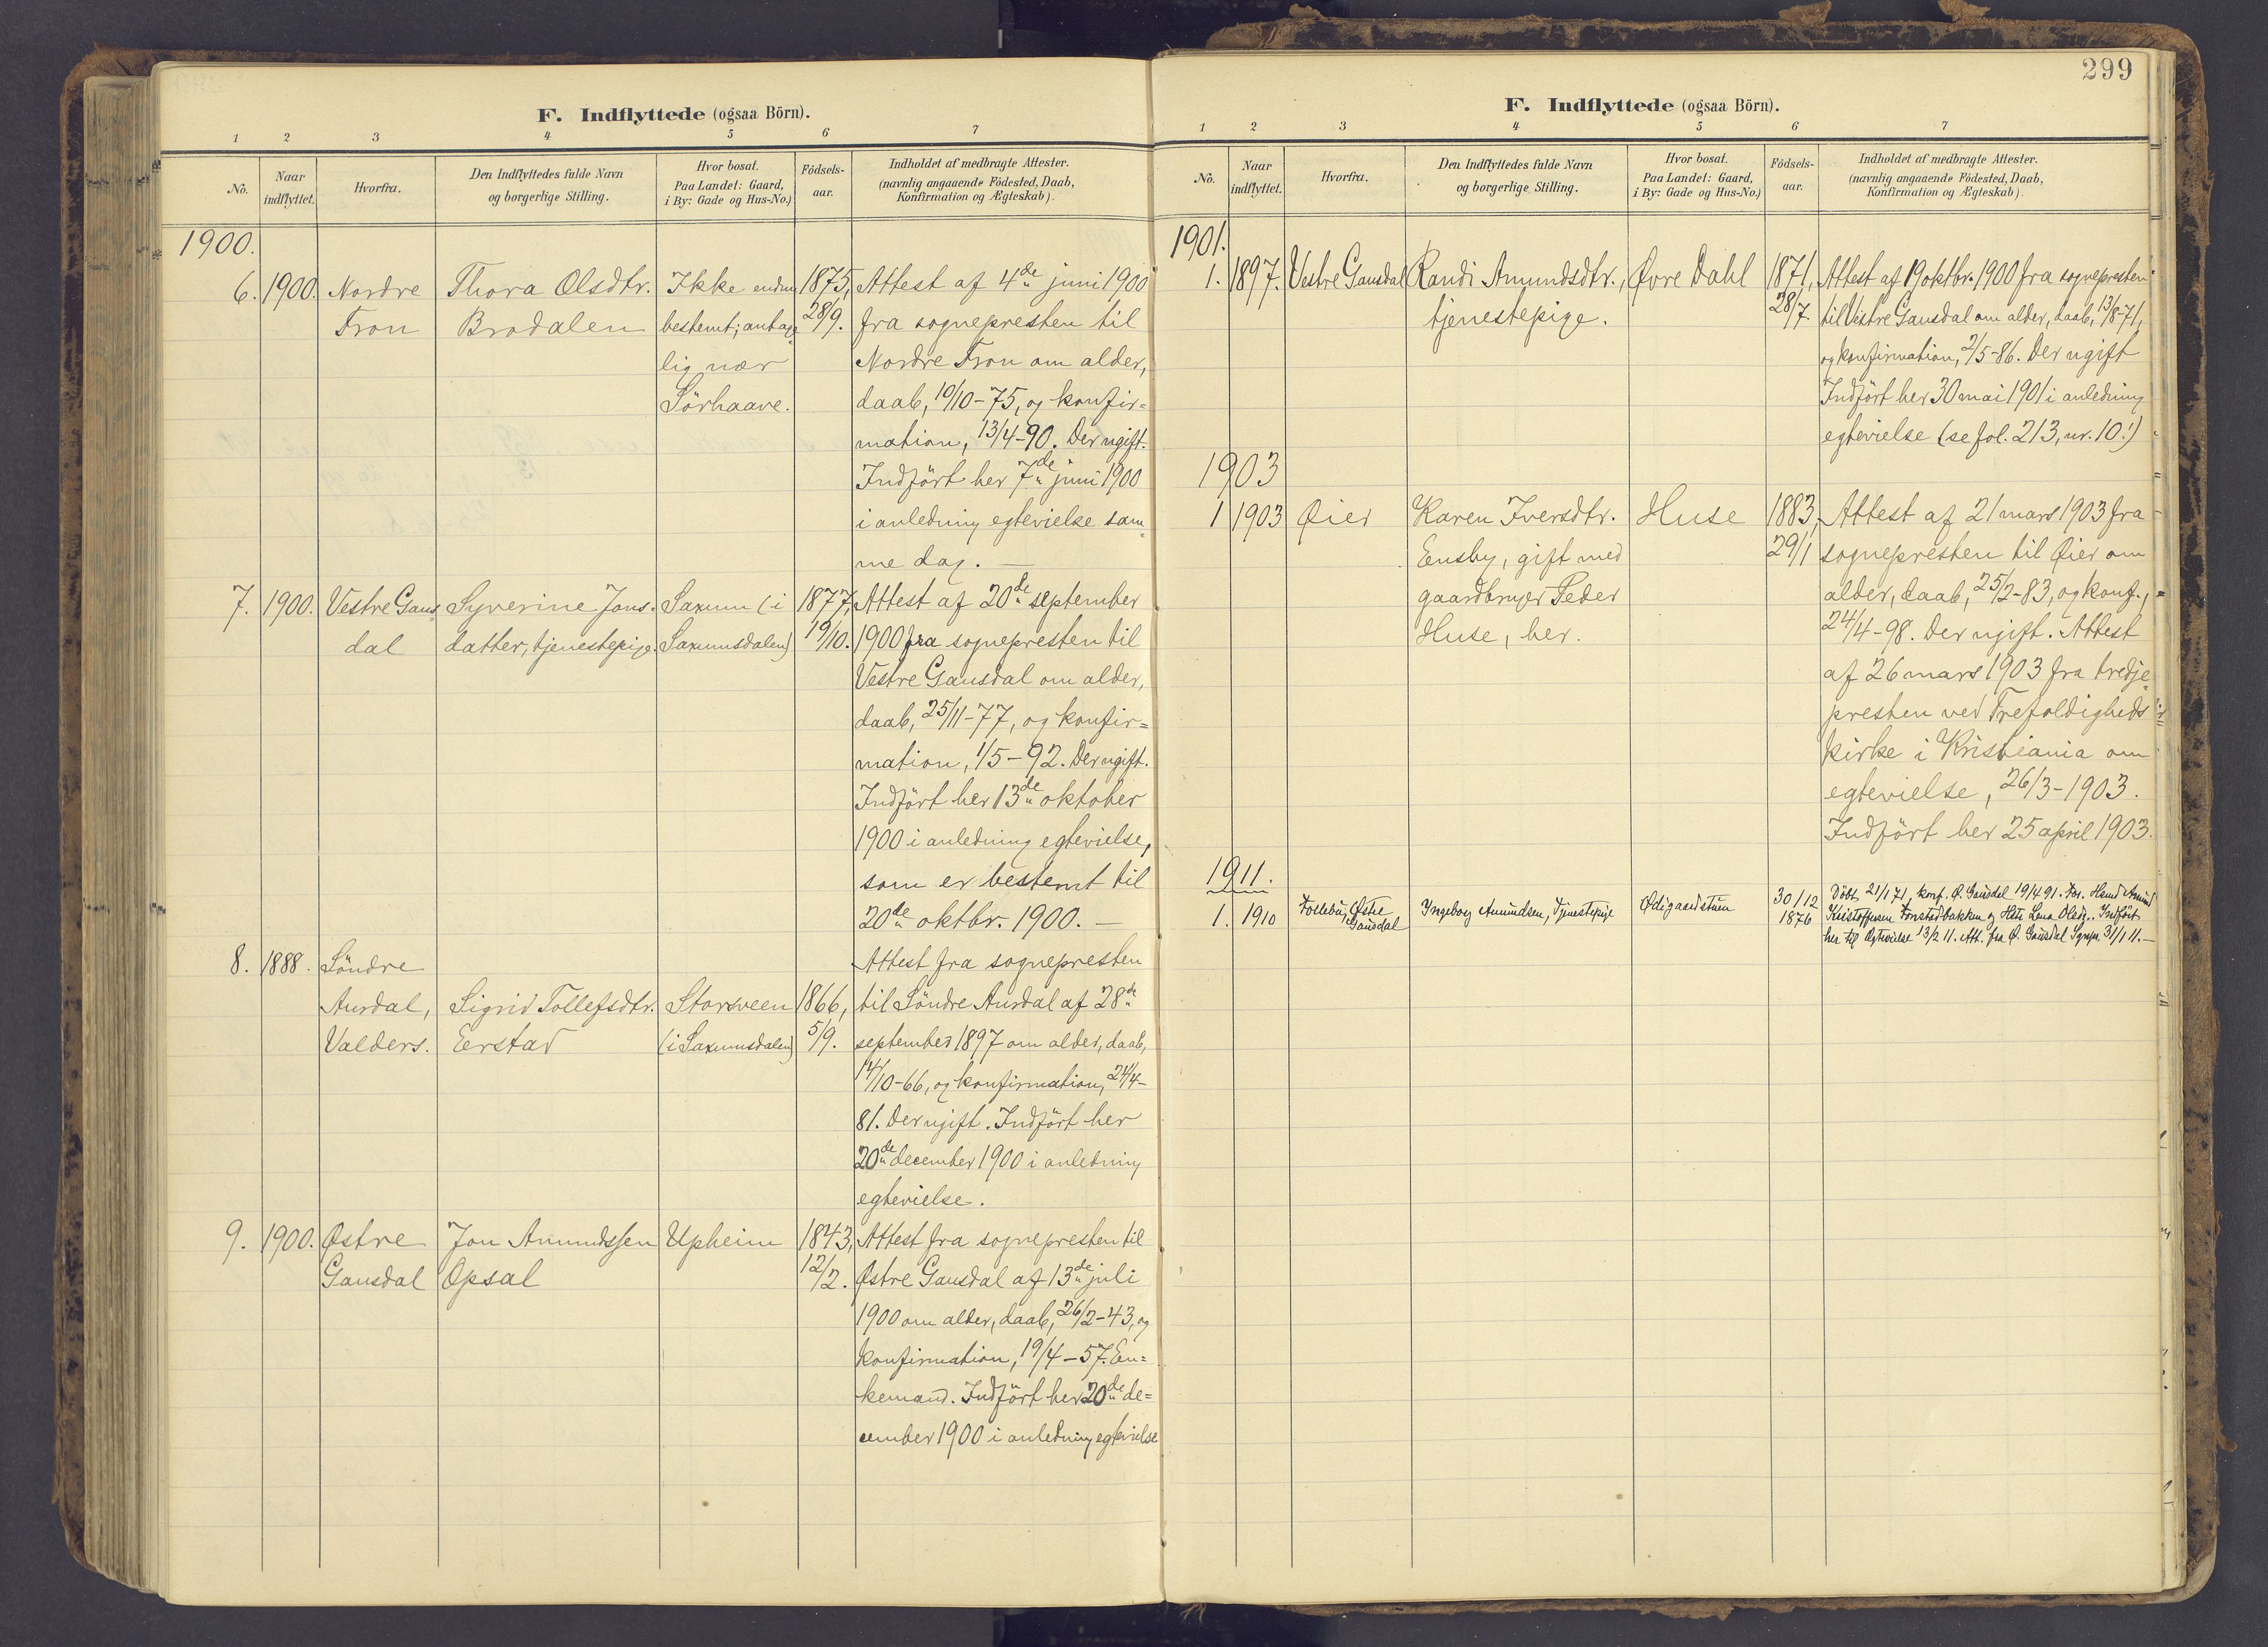 F. Indflyttede (ogsaa Börn).
1 2 3 4 5 6 7
No. Naar indflyttet. Hvorfra. Den Indflyttedes fulde Navn og borgerlige Stilling. Hvor bosat. Paa Landet: Gaard, i By: Gade og Hus-No.) Födsels-aar. Indholdet af medbragte Attester. (navnlig angaaende Födested, Daab, Konfirmation og Ægteskab).
1900.
6. 1900. Nordre Thora Olsdtr. Ikke endnu 1875, Attest af 4de juni 1900
Fron Brodalen bestemt; antage- 28/9. fra sognepresten til
lig nær Nordre Fron om alder,
Sörhaave. daab, 10/10-75, og konfir=
mation, 13/4-90. Der ugift.
Indfört her 7de juni 1900
i anledning egtevielse sam-
me dag. —
7. 1900. Vestre Gaus- Syverine Jons- Saxum (i 1877, Attest af 20de september
dal datter, tjenestepige. Saxumsdalen) 19/10. 1900 fra sognepresten til
Vestre Gausdal om alder,
daab, 25/11-77, og konfir=
mation, 1/5-92. Der ugift.
Indfört her 13de oktober
1900 i anledning egtevielse,
som er bestemt til
20de oktbr. 1900. —
8. 1888. Söndre Attest fra sognepresten
Aurdal, Sigrid Tollefsdtr. Storsveen 1866, til Söndre Aurdal af 28de
Valders. Eerstad (i Saxumsdalen) 5/9. september 1897 om alder, daab,
14/10-66, og konfirmation, 24/4-
81. Der ugift. Indfört her
20de december 1900 i anledning
egtevielse.
9. 1900. Østre Jon Amundssen Upheim 1843, Attest fra sognepresten til
Gausdal Opsal 12/2. Østre Gausdal af 13de juli
1900 om alder, daab, 26/2-43, og
konfirmation, 19/4-57. En=
kemand. Indfört her 20de de=
cember 1900 i anledning egtevielse
299
F. Indflyttede (ogsaa Börn).
1 2 3 4 5 6 7
No. Naar indflyttet. Hvorfra. Den Indflyttedes fulde Navn og borgerlige Stilling. Hvor bosat. Paa Landet: Gaard, i By: Gade og Hus-No.) Födsels-aar. Indholdet af medbragte Attester. (navnlig angaaende Födested, Daab, Konfirmation og Ægteskab).
1901.
1. 1897. Vestre Gausdal Randi Amundsdtr., Øvre Dahl 1871, Attest af 19 oktbr. 1900 fra sognepresten
tjenestepige. 28/7 til Vestre Gausdal om alder, daab, 13/8-71,
og konfirmation, 2/5-86. Der ugift
Indfört her 30 mai 1901 i anledning
egtevielse (se fol. 213, nr. 10.)
1903
1 1903 Øier Karen Iversdtr. Huse 1883, Attest af 21 mars 1903 fra
Ensby, gift med 29/1 sognepresten til Øier om
gaardbruger Peder alder, daab, 25/2-83, og konf.,
Huse, her. 24/4-98. Der ugift. Attest
af 26 mars 1903 fra tredje-
presten ved Trefoldigheds
kirke i Kristiania om
egtevielse, 26/3-1903.
Indfört her 25 april 1903.
1911.
1. 1910 Follebu, Østre Gausdal Ingeborg Amundsen, Tjenestepige Ødigaardstuen 30/12 1876 Döbt 21/1 71, konf. Ø. Gausdal 19/4 91. For. Hsmd Amund
Kristoffersen Fonstadbakken og Hstr Lena Olsdr. Indfört
her til Egtevielse 13/2 11. Att. fra Ø. Gausdal Sgnpr. 31/1 11.—